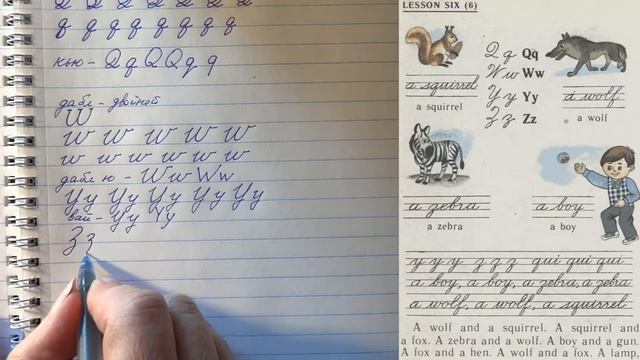 Q Q Q Q Q Q Q
q q q q q q q q
кью - Q q Q Q q q
дабл - двойной
W
W W W W W
w w w w w w
дабл ю - W w W w
Yy Yy Yy Yy Yy
вай - Yy Yy
Z z
LESSON SIX (6)
Q q Qq
W w Ww
Y y Yy
Z z Zz
a squirrel
a squirrel
a wolf
a wolf
a zebra
a zebra
a boy
a boy
y y y z z z qui qui qui
a boy, a boy, a zebra, a zebra
a wolf, a wolf, a squirrel
A wolf and a squirrel. A squirrel and
a fox. A zebra and a wolf. A boy and a gun.
A fox and a hen. A wolf and a fox. A lamp